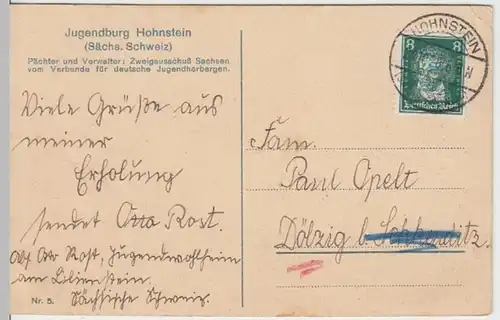 Jugendburg Hohnstein
(Sächs. Schweiz)
Pächter und Verwalter: Zweigausschuß Sachsen
vom Verbande für deutsche Jugendherbergen.
Viele Grüße aus
meiner
Erholung
sendet Otto Rost.
Otto Rost, Jugendwohlheim
am Lilienstein.
Sächsische Schweiz.
Nr. 5.
HOHNSTEIN
8 8
Deutsches Reich
Fam.
Paul Opelt
Dölzig b. Schkeuditz